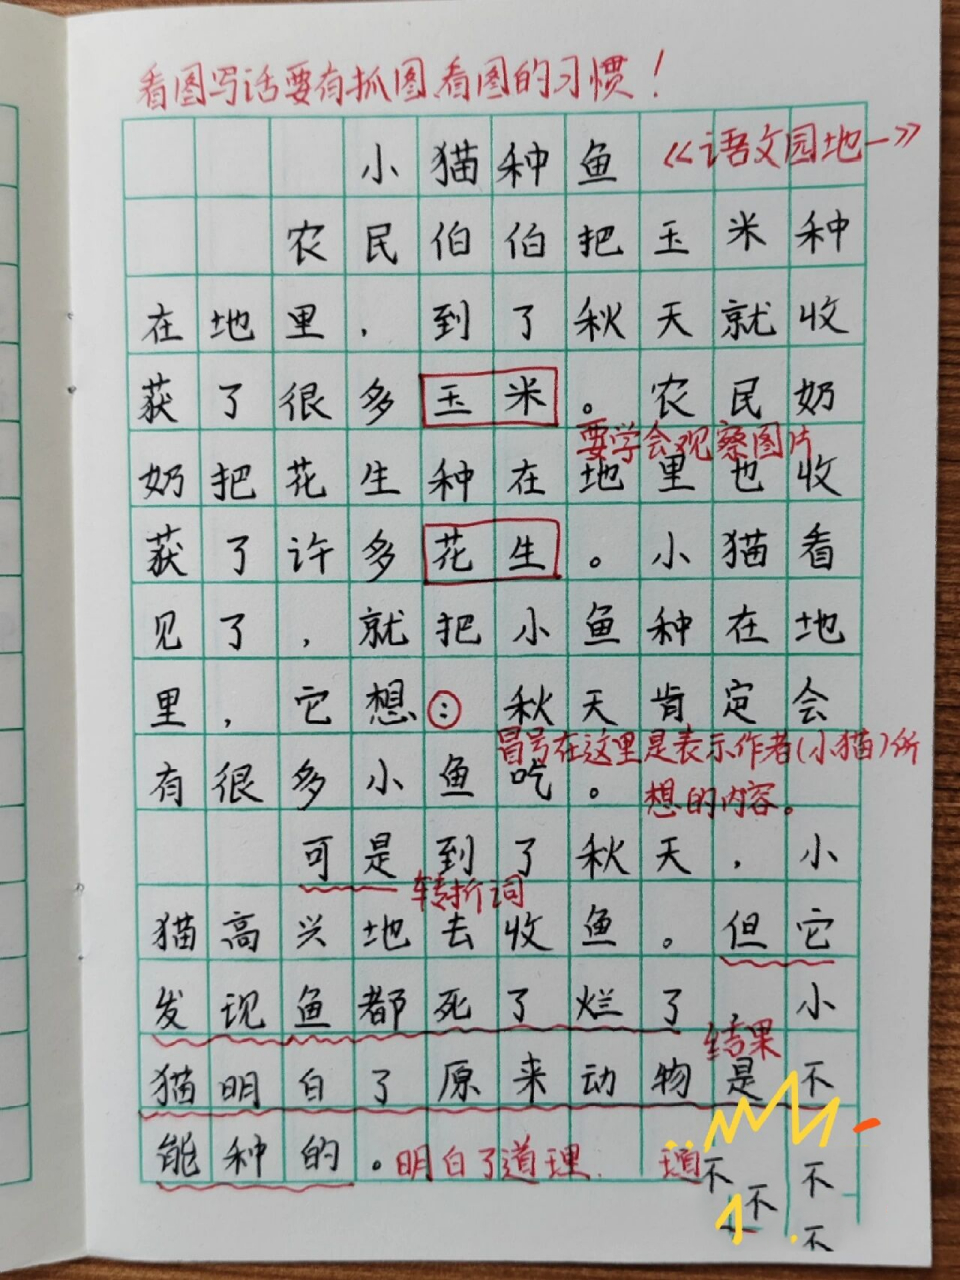 看图写话要有抓图、看图的习惯！
小猫种鱼 《语文园地一》
农民伯伯把玉米种
在地里，到了秋天就收
获了很多玉米。农民奶
要学会观察图片
奶把花生种在地里也收
获了许多花生。小猫看
见了，就把小鱼种在地
里，它想：秋天肯定会
冒号在这里是表示作者(小猫)所
有很多小鱼吃。
想的内容。
可是到了秋天，小
转折词
猫高兴地去收鱼。但它
发现鱼都死了烂了，小
结果
猫明白了原来动物是不
能种的。明白了道理
不 不
不
不